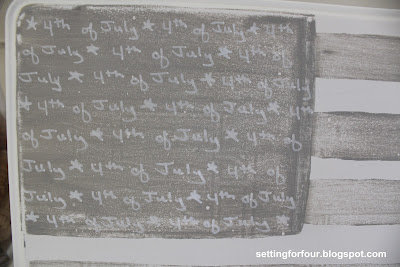 * 4th of July * 4th of July * 4th
of July * 4th of July * 4th of
July * 4th of July * 4th of July
* 4th of July * 4th of July * 4th
of July * 4th of July * 4th of
July * 4th of July * 4th of
July * 4th of July * 4th of July
* 4th of July * 4th of July *
settingforfour.blogspot.com